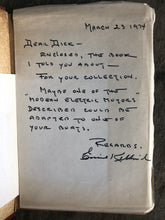 MARCH 23 1974
DEAR DICK —
ENCLOSED, THE BOOK
I TOLD YOU ABOUT —
FOR YOUR COLLECTION.
"MAYBE ONE OF THE
"MODERN ELECTRIC MOTORS"
DESCRIBED COULD BE
ADAPTED TO ONE OF
YOUR BOATS.
REGARDS,